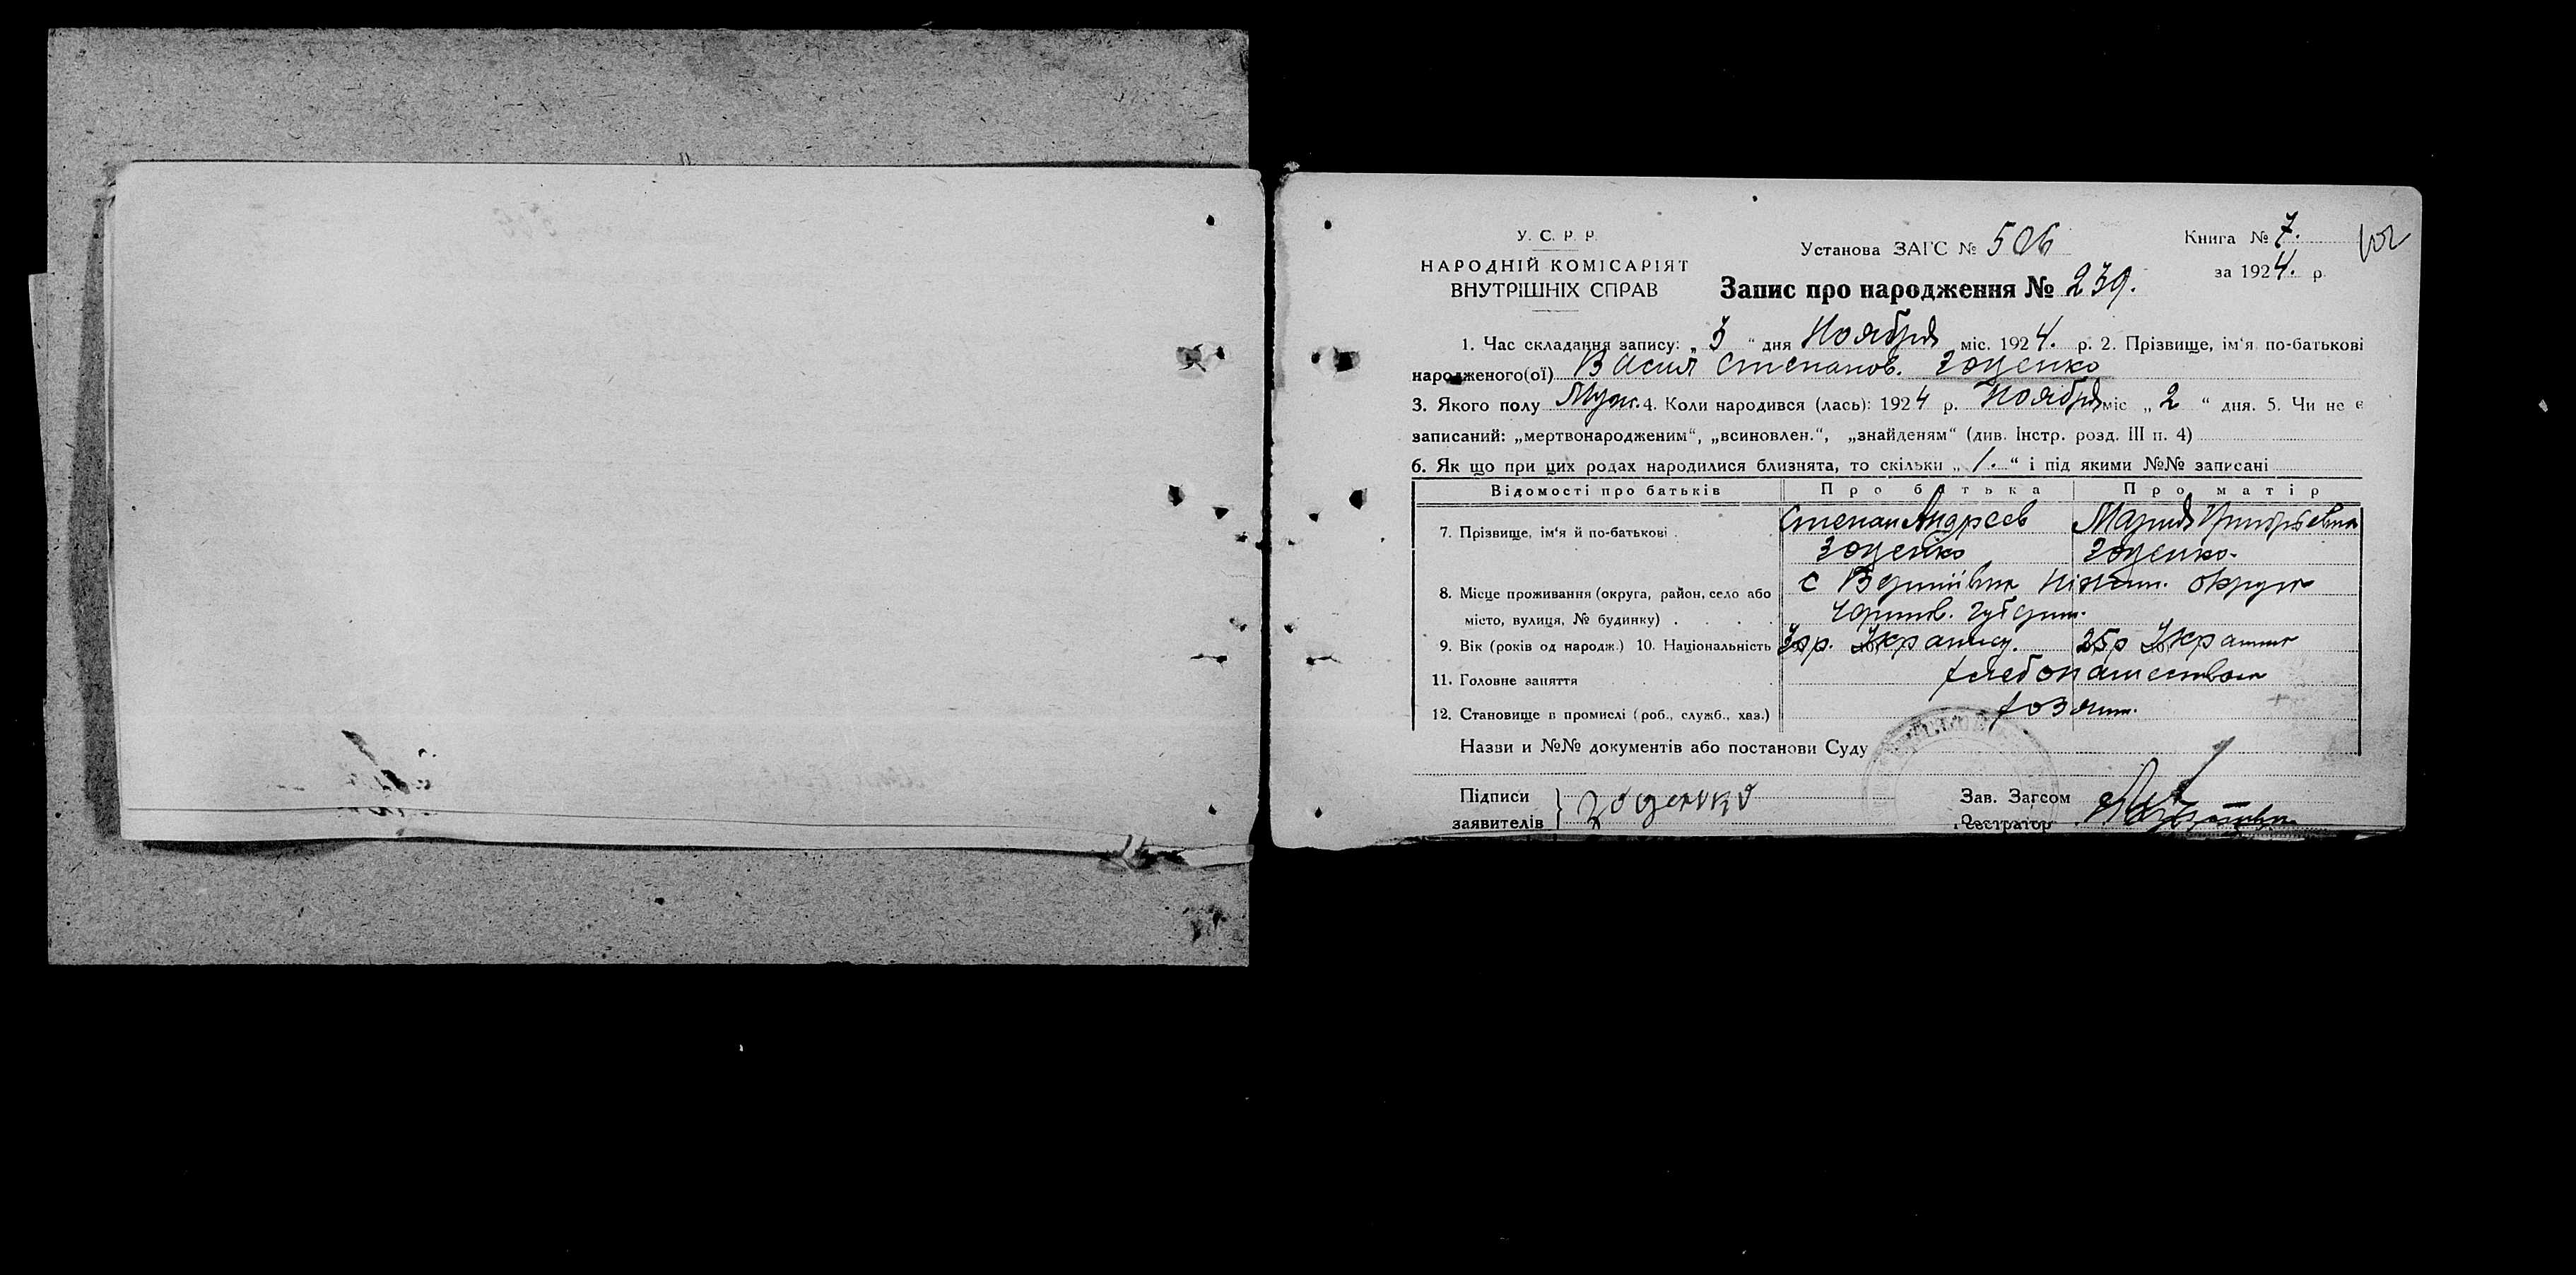 У. С. Р. Р.
НАРОДНІЙ КОМІСАРІЯТ
ВНУТРІШНІХ СПРАВ
Установа ЗАГС № 506
Запис про народження № 239.
Книга № 7.
за 1924. р.
1. Час складання запису: „ 3 “ дня Ноября міс. 1924. р. 2. Прізвище, ім‘я по-батькові
народженого(ої) Васил Степанов. Зоценко
3. Якого полу Муж. 4. Коли народився (лась): 1924 р. Ноября міс „ 2 “ дня. 5. Чи не є
записаний: „мертвонародженим“, „всиновлен.“, „знайденям“ (див. Інстр. розд. III п. 4)
6. Як що при цих родах народилися близнята, то скільки „ 1. “ і під якими №№ записані
Відомості про батьків Про батька Про матір
7. Прізвище, ім‘я й по-батькові Степан Андреев Мария
Зоценко Зоценко
8. Місце проживання (округа, район, село або с Ніжин. округи
місто, вулиця, № будинку) Черниг. губерн.
9. Вік (років од народж.) 10. Національність 25р
11. Головне заняття хлебопашество
12. Становище в промислі (роб., служб., хаз.) хозяин.
Назви и №№ документів або постанови Суду
Підписи
заявителів Зоценко
Зав. Загсом
Реєстратор